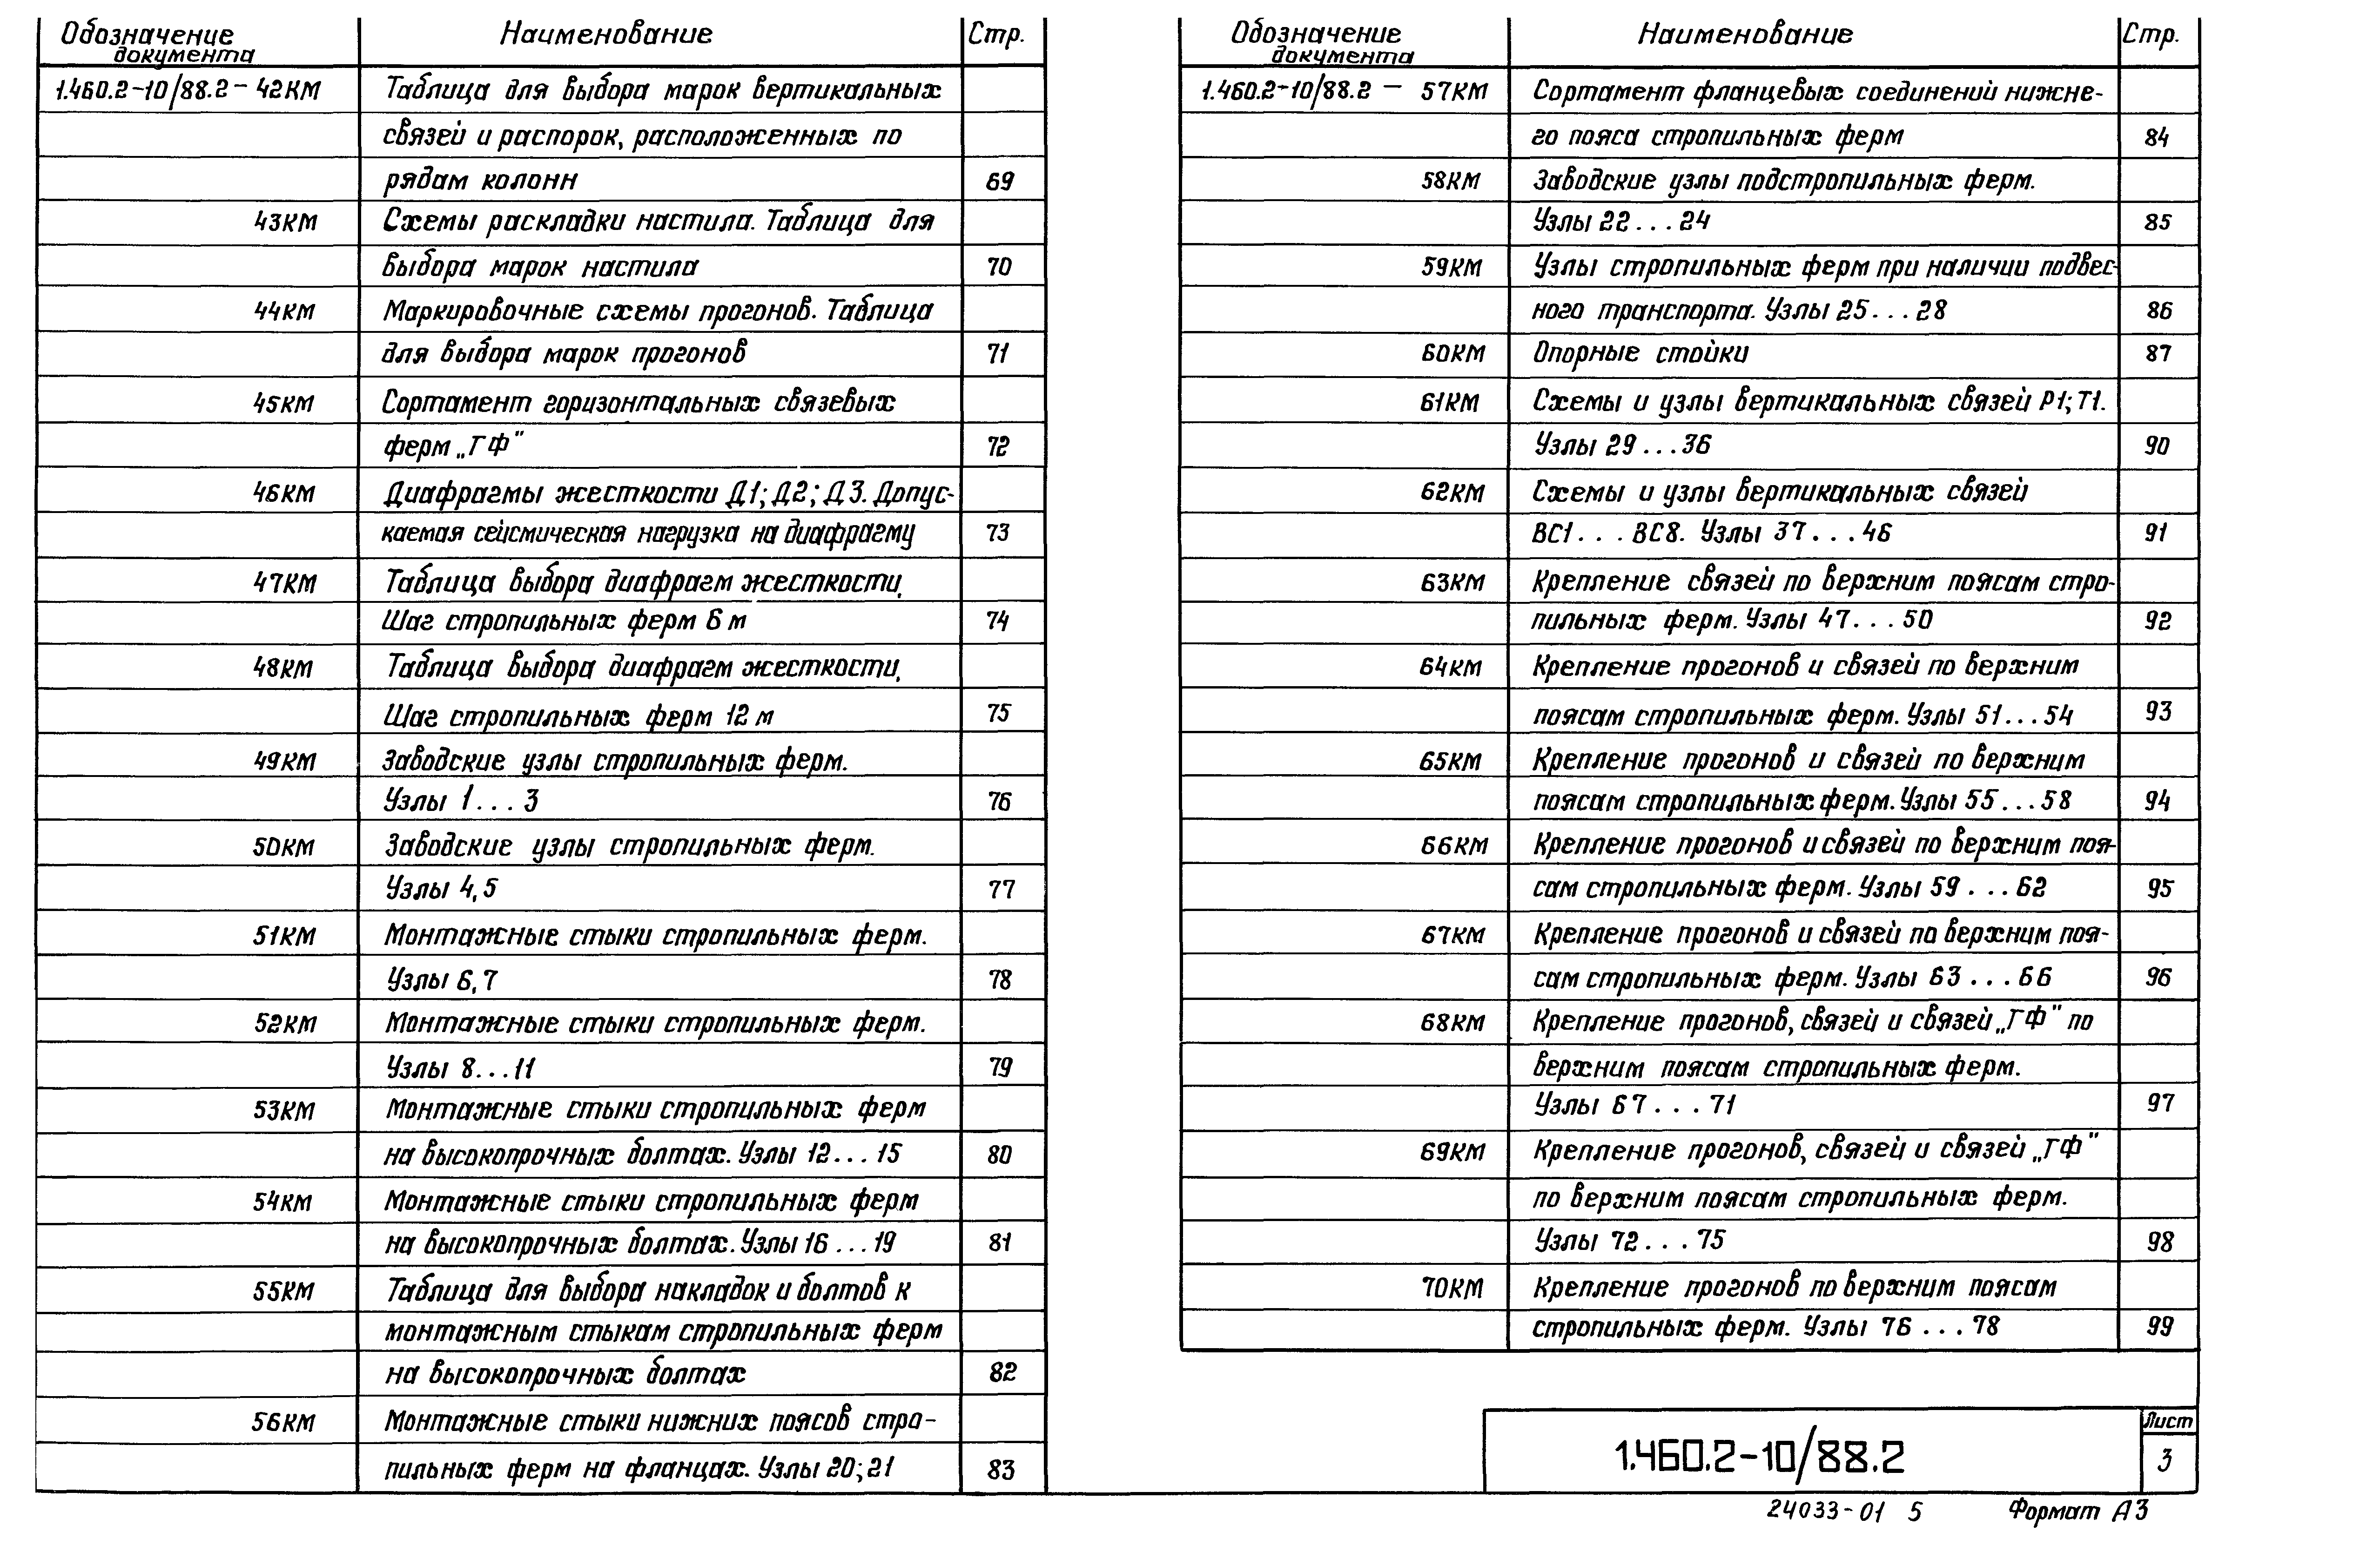 Обозначение документа Наименование Стр.
1.460.2-10/88.2 - 42КМ Таблица для выбора марок вертикальных
связей и распорок, расположенных по
рядам колонн 69
43КМ Схемы раскладки настила. Таблица для
выбора марок настила 70
44КМ Маркировочные схемы прогонов. Таблица
для выбора марок прогонов 71
45КМ Сортамент горизонтальных связевых
ферм „ГФ" 72
46КМ Диафрагмы жесткости Д1; Д2; Д3. Допус-
каемая сейсмическая нагрузка на диафрагму 73
47КМ Таблица выбора диафрагм жесткости.
Шаг стропильных ферм 6 м 74
48КМ Таблица выбора диафрагм жесткости.
Шаг стропильных ферм 12 м 75
49КМ Заводские узлы стропильных ферм.
Узлы 1...3 76
50КМ Заводские узлы стропильных ферм.
Узлы 4,5 77
51КМ Монтажные стыки стропильных ферм.
Узлы 6,7 78
52КМ Монтажные стыки стропильных ферм.
Узлы 8...11 79
53КМ Монтажные стыки стропильных ферм
на высокопрочных болтах. Узлы 12...15 80
54КМ Монтажные стыки стропильных ферм
на высокопрочных болтах. Узлы 16...19 81
55КМ Таблица для выбора накладок и болтов к
монтажным стыкам стропильных ферм
на высокопрочных болтах 82
56КМ Монтажные стыки нижних поясов стро-
пильных ферм на фланцах. Узлы 20; 21 83
Обозначение документа Наименование Стр.
1.460.2-10/88.2 - 57КМ Сортамент фланцевых соединений нижне-
го пояса стропильных ферм 84
58КМ Заводские узлы подстропильных ферм.
Узлы 22...24 85
59КМ Узлы стропильных ферм при наличии подвес-
ного транспорта. Узлы 25...28 86
60КМ Опорные стойки 87
61КМ Схемы и узлы вертикальных связей Р1; Т1.
Узлы 29...36 90
62КМ Схемы и узлы вертикальных связей
ВС1...ВС8. Узлы 37...46 91
63КМ Крепление связей по верхним поясам стро-
пильных ферм. Узлы 47...50 92
64КМ Крепление прогонов и связей по верхним
поясам стропильных ферм. Узлы 51...54 93
65КМ Крепление прогонов и связей по верхним
поясам стропильных ферм. Узлы 55...58 94
66КМ Крепление прогонов и связей по верхним поя-
сам стропильных ферм. Узлы 59...62 95
67КМ Крепление прогонов и связей по верхним поя-
сам стропильных ферм. Узлы 63...66 96
68КМ Крепление прогонов, связей и связей „ГФ" по
верхним поясам стропильных ферм.
Узлы 67...71 97
69КМ Крепление прогонов, связей и связей „ГФ"
по верхним поясам стропильных ферм.
Узлы 72...75 98
70КМ Крепление прогонов по верхним поясам
стропильных ферм. Узлы 76...78 99
1.460.2-10/88.2 Лист 3
24033-01 5 Формат А3